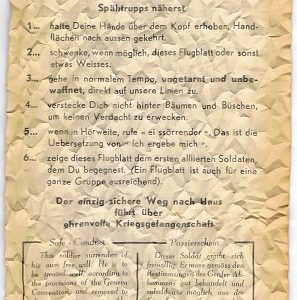 Spähtrupps näherst
1... halte Deine Hände über dem Kopf erhoben, Hand-
flächen nach aussen gekehrt.
2... schwenke, wenn möglich, dieses Flugblatt oder sonst
etwas Weisses.
3... gehe in normalem Tempo, ungetarnt und unbe-
waffnet, direkt auf unsere Linien zu.
4... verstecke Dich nicht hinter Bäumen und Büschen,
um keinen Verdacht zu erwecken.
5... wenn in Hörweite, rufe « ei ssörrender ». Das ist die
Uebersetzung von « Ich ergebe mich ».
6... zeige dieses Flugblatt dem ersten alliierten Soldaten,
dem Du begegnest. (Ein Flugblatt ist auch für eine
ganze Gruppe ausreichend).
Der einzig sichere Weg nach Haus
führt über
ehrenvolle Kriegsgefangenschaft.
Safe - Conduct
This soldier surrenders of
his own free will. He is to
be treated well, according to
the provisions of the Geneva
Convention, and removed to
Passierschein
Dieser Soldat ergibt sich
freiwillig. Er muss gemäss den
Bestimmungen des Genfer Ab-
kommens gut behandelt und